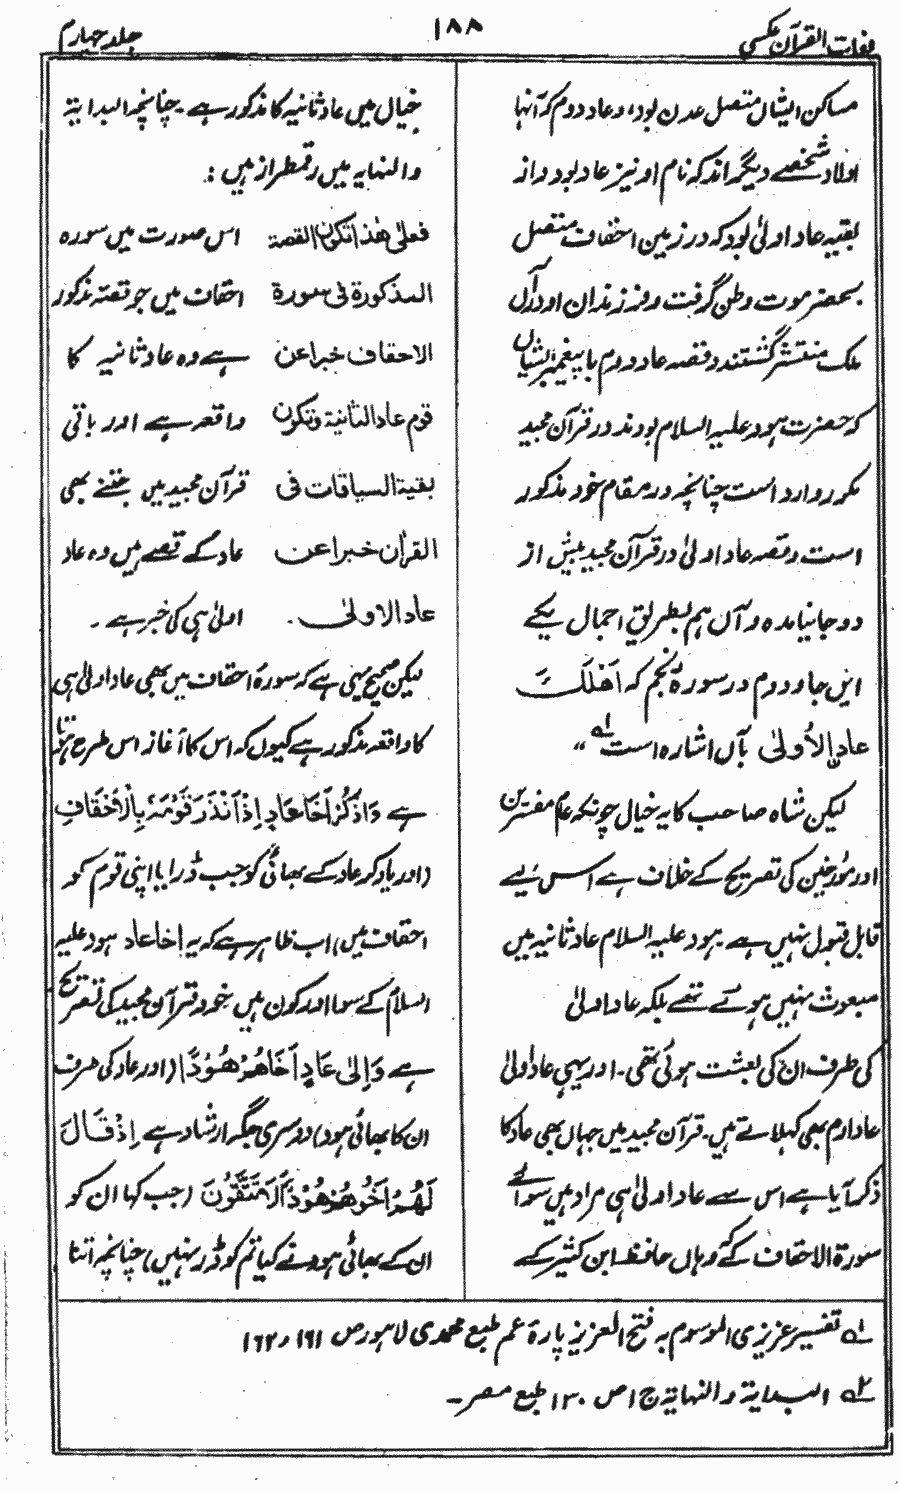 لغات القرآن عکسی
۱۸۸
جلد چہارم
مساکن ایشاں متصل عدن بود، وعاد دوم کہ آنہا
اولاد شخصے دیگر اند کہ نام او نیز عاد بود و از
بقیہ عاد اولیٰ بود کہ در زمین احقاف متصل
بحضر موت وطن گرفت و فرزندان او دراں
ملک منتشر گشتند و قصہ عاد دوم با پیغمبر ایشاں
کہ حضرت ہود علیہ السلام بودند در قرآن مجید
مکرر وارد است چنانچہ در مقام خود مذکور
است و قصہ عاد اولیٰ در قرآن مجید بیش از
دو جا نیامدہ و آں ہم بطریق اجمال یکے
ایں جا و دوم در سورہ نجم کہ اَهْلَكَ
عَادَنِ الْاُولیٰ بآں اشارہ است لہ“
لیکن شاہ صاحب کا یہ خیال چونکہ عام مفسرین
اور مؤرخین کی تصریح کے خلاف ہے اس لئے
قابل قبول نہیں ہے ہود علیہ السلام عاد ثانیہ میں
مبعوث نہیں ہوئے تھے بلکہ عاد اولیٰ
کی طرف ان کی بعثت ہوئی تھی۔ اور یہی عاد اولیٰ
عاد ارم بھی کہلاتے ہیں۔ قرآن مجید میں جہاں بھی عاد کا
ذکر آیا ہے اس سے عاد اولیٰ ہی مراد ہیں سوائے
سورة الاحقاف کے کہ وہاں حافظ ابن کثیر کے
خیال میں عاد ثانیہ کا ذکور ہے۔ چنانچہ البدایة
والنہایہ میں رقمطراز ہیں:
فعلیٰ هذا تکون القصة اس صورت میں سورہ
المذکورة فی سورة احقاف میں جو قصہ مذکور
الاحقاف خبرا عن ہے وہ عاد ثانیہ کا
قوم عاد الثانیة وتکون واقعہ ہے اور باقی
بقیة السیاقات فی قرآن مجید میں جتنے بھی
القرأن خبرا عن عاد کے قصے ہیں وہ عاد
عاد الاولیٰ. اولیٰ ہی کی خبر ہے۔
لیکن صحیح یہی ہے کہ سورۂ احقاف میں بھی عاد اولیٰ ہی
کا واقعہ مذکور ہے کیوں کہ اس کا آغاز اس طرح ہوتا
ہے وَاذْكُرْ اَخَا عَادٍ اِذْ اَنْذَرَ قَوْمَهٗ بِالْاَحْقَافِ
(اور یاد کر عاد کے بھائی کو جب ڈرایا اپنی قوم کو
احقاف میں) اب ظاہر ہے کہ یہ اخا عاد ہود علیہ
السلام کے سوا اور کون ہیں خود قرآن مجید کی تصریح
ہے وَاِلیٰ عَادٍ اَخَاهُمْ هُوْدًا (اور عاد کی طرف
ان کا بھائی ہود) دوسری جگہ ارشاد ہے اِذْ قَالَ
لَهُمْ اَخُوْهُمْ هُوْدٌ اَلَا تَتَّقُوْنَ (جب کہا ان کو
ان کے بھائی ہود نے کیا تم کو ڈر نہیں) چنانچہ اتنا
۱ہ تفسیر عزیزی الموسوم بہ فتح العزیز پارۂ عم طبع محمدی لاہور ص ۱۶۱ و ۱۶۲
۲ہ البدایة والنہایة ج ۱ ص ۱۳۰ طبع مصر۔